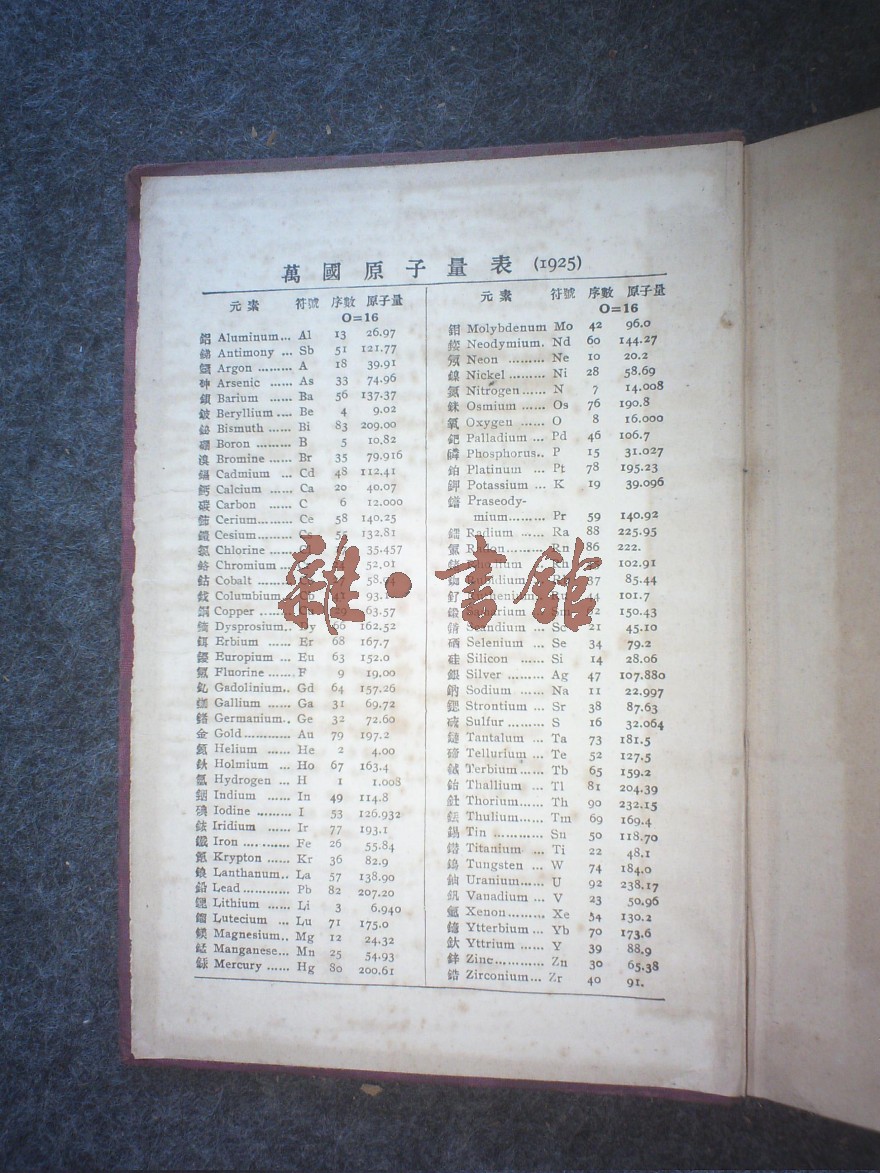 萬國原子量表 (1925)
元素 符號 序數 原子量
O=16
鋁 Aluminum... Al 13 26.97
銻 Antimony ... Sb 51 121.77
Argon ...... A 18 39.91
砷 Arsenic ...... As 33 74.96
鋇 Barium ...... Ba 56 137.37
鈹 Beryllium .... Be 4 9.02
鉍 Bismuth ...... Bi 83 209.00
硼 Boron ......... B 5 10.82
溴 Bromine ...... Br 35 79.916
鎘 Cadmium ... Cd 48 112.41
鈣 Calcium ...... Ca 20 40.07
碳 Carbon ...... C 6 12.000
鈰 Cerium......... Ce 58 140.25
Cesium......... 55 132.81
氯 Chlorine ...... 35.457
鉻 Chromium... 52.01
鈷 Cobalt ......
Columbium.
銅 Copper ........ 63.57
鏑 Dysprosium.. Dy 66 162.52
鉺 Erbium ...... Er 68 167.7
Europium ... Eu 63 152.0
氟 Fluorine ...... F 9 19.00
釓 Gadolinium.. Gd 64 157.26
鎵 Gallium ...... Ga 31 69.72
鍺 Germanium.. Ge 32 72.60
金 Gold............ Au 79 197.2
氦 Helium ...... He 2 4.00
鈥 Holmium ... Ho 67 163.4
氫 Hydrogen ... H 1 1.008
銦 Indium ...... In 49 114.8
碘 Iodine ......... I 53 126.932
銥 Iridium ...... Ir 77 193.1
鐵 Iron ........... Fe 26 55.84
氪 Krypton ...... Kr 36 82.9
Lanthanum.. La 57 138.90
鉛 Lead............ Pb 82 207.20
鋰 Lithium ...... Li 3 6.940
Lutecium ... Lu 71 175.0
鎂 Magnesium.. Mg 12 24.32
錳 Manganese... Mn 25 54.93
Mercury ...... Hg 80 200.61
元素 符號 序數 原子量
O=16
鉬 Molybdenum Mo 42 96.0
Neodymium. Nd 60 144.27
氖 Neon ......... Ne 10 20.2
鎳 Nickel......... Ni 28 58.69
氮 Nitrogen...... N 7 14.008
Osmium ...... Os 76 190.8
氧 Oxygen ...... O 8 16.000
鈀 Palladium ... Pd 46 106.7
磷 Phosphorus.. P 15 31.027
鉑 Platinum ... Pt 78 195.23
鉀 Potassium ... K 19 39.096
鐠 Praseody-
mium......... Pr 59 140.92
鐳 Radium ...... Ra 88 225.95
氡 Radon......... Rn 86 222.
102.91
85.44
釕 44 101.7
150.43
21 45.10
硒 Selenium ... Se 34 79.2
硅 Silicon ...... Si 14 28.06
銀 Silver ......... Ag 47 107.880
鈉 Sodium ...... Na 11 22.997
鍶 Strontium ... Sr 38 87.63
硫 Sulfur ......... S 16 32.064
Tantalum ... Ta 73 181.5
碲 Tellurium ... Te 52 127.5
Terbium...... Tb 65 159.2
Thallium ... Tl 81 204.39
釷 Thorium...... Th 90 232.15
Thulium...... Tm 69 169.4
錫 Tin ............ Sn 50 118.70
Titanium ... Ti 22 48.1
鎢 Tungsten ... W 74 184.0
鈾 Uranium...... U 92 238.17
釩 Vanadium ... V 23 50.96
氙 Xenon......... Xe 54 130.2
鐿 Ytterbium ... Yb 70 173.6
Yttrium ...... Y 39 88.9
鋅 Zinc............ Zn 30 65.38
鋯 Zirconium... Zr 40 91.
雜·書館